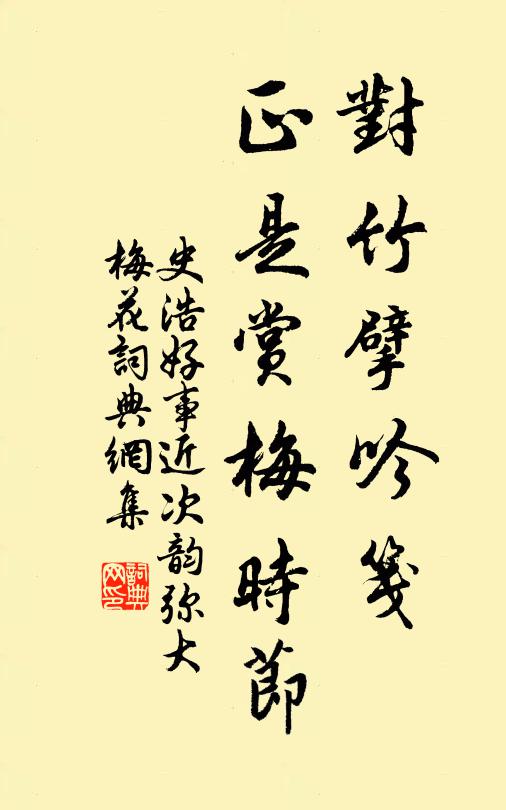 對竹擘吟箋
正是賞梅時節
史浩好事近次韵弥大
梅花詞典網集
詞典网印